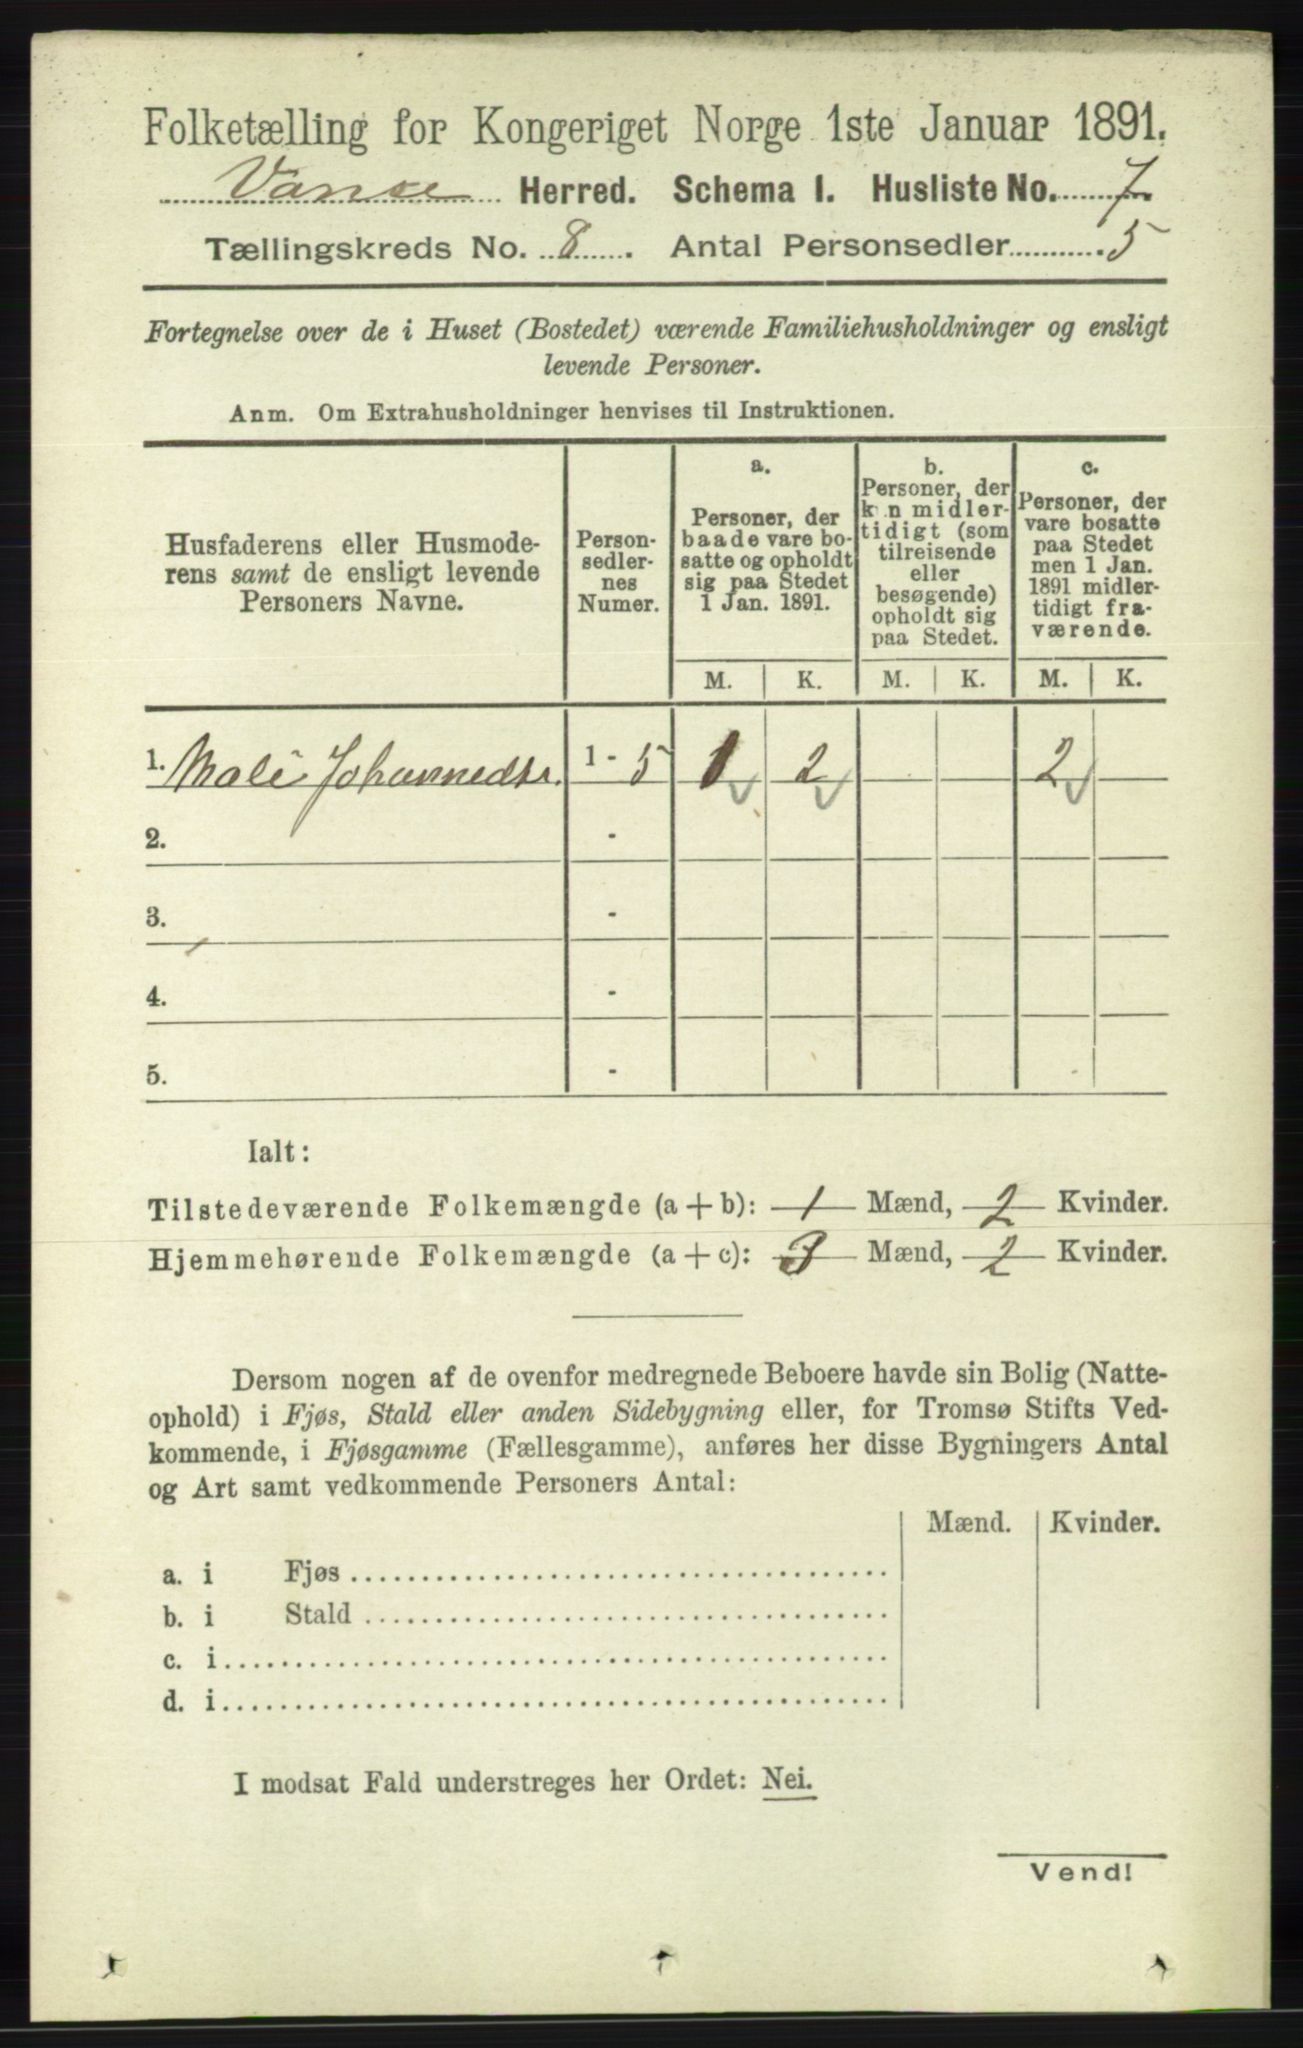 Folketælling for Kongeriget Norge 1ste Januar 1891.
Vanse Herred. Schema I. Husliste No. 7
Tællingskreds No. 8. Antal Personsedler 5
Fortegnelse over de i Huset (Bostedet) værende Familiehusholdninger og ensligt
levende Personer.
Anm. Om Extrahusholdninger henvises til Instruktionen.
Husfaderens eller Husmode-
rens samt de ensligt levende
Personers Navne.
Person-
sedler-
nes
Numer.
a.
Personer, der
baade vare bo-
satte og opholdt
sig paa Stedet
1 Jan. 1891.
b.
Personer, der
kun midler-
tidigt (som
tilreisende
eller
besøgende)
opholdt sig
paa Stedet.
c.
Personer, der
vare bosatte
paa Stedet
men 1 Jan.
1891 midler-
tidigt fra-
værende.
M. K. M. K. M. K.
1. Male Johannedtr. 1 - 5 1 2 2
2. -
3. -
4. -
5. -
Ialt:
Tilstedeværende Folkemængde (a + b): 1 Mænd, 2 Kvinder.
Hjemmehørende Folkemængde (a + c): 3 Mænd, 2 Kvinder.
Dersom nogen af de ovenfor medregnede Beboere havde sin Bolig (Natte-
ophold) i Fjøs, Stald eller anden Sidebygning eller, for Tromsø Stifts Ved-
kommende, i Fjøsgamme (Fællesgamme), anføres her disse Bygningers Antal
og Art samt vedkommende Personers Antal:
Mænd. Kvinder.
a. i Fjøs
b. i Stald
c. i
d. i
I modsat Fald understreges her Ordet: Nei.
Vend!